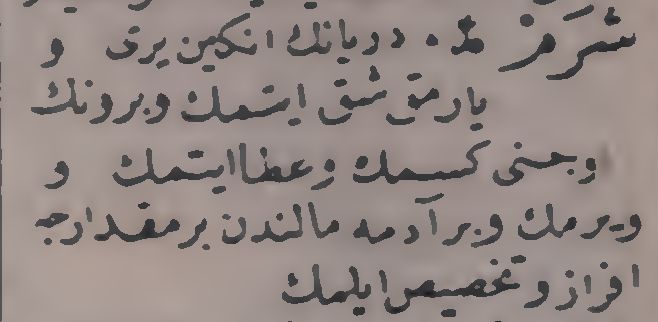 شرمز مد ە دریانك انكین یری و
یارمق شق ایتمك و برونك
وجنی كسمك و عطا ایتمك و
ویرمك و بر آدمه مالندن بر مقدارجه
افراز و تخصیص ایلمك